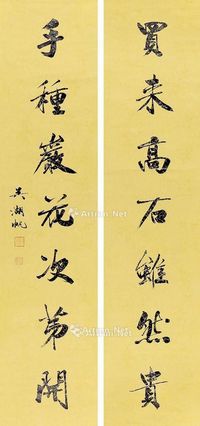 買來高石雖然貴
手種巖花次第開
吳湖帆
Artron.Net
Artron.Net